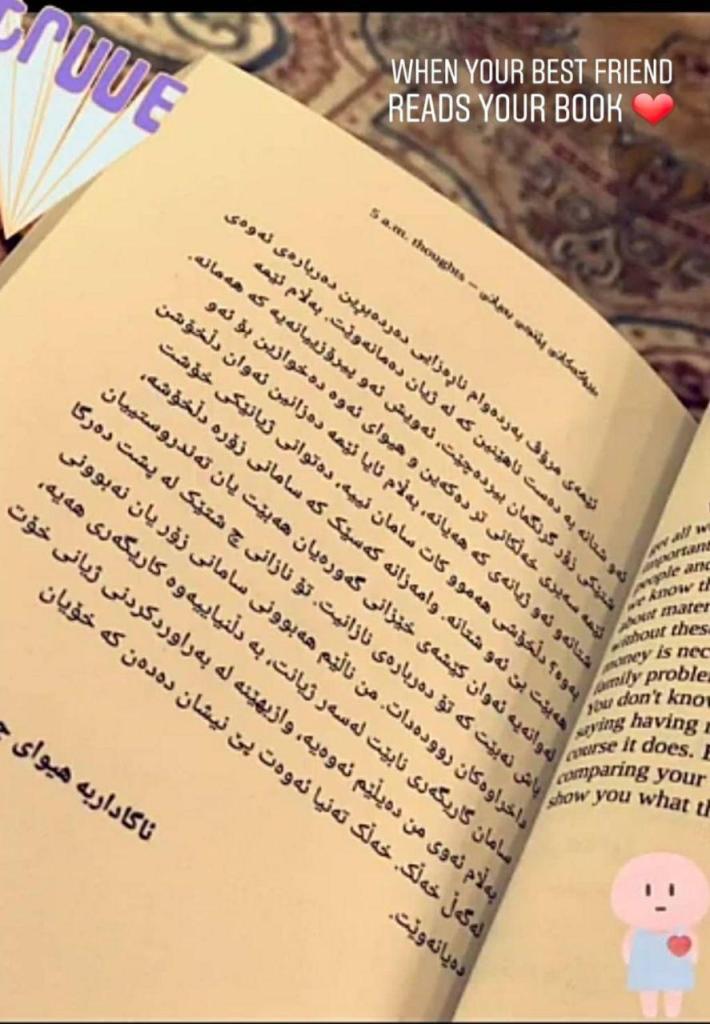 TRUUE
WHEN YOUR BEST FRIEND
READS YOUR BOOK
5 a.m. thoughts – پێنجی بەیانی
ئێمەی مرۆڤ بەردەوام ناڕەزایی دەردەبڕین دەربارەی ئەوەی
ئەو شتانە بە دەست ناهێنین کە لە ژیان دەمانەوێت. بەڵام ئێمە
شتێکی زۆر گرنگمان بیردەچێت، ئەویش ئەو پیرۆزییانەیە کە هەمانە.
ئێمە سەیری خەڵکانی تر دەکەین و هیوای ئەوە دەخوازین بۆ ئەو
شتانەو ئەو ژیانەی کە هەیانە، بەڵام ئایا ئێمە دەزانین ئەوان دڵخۆشن
بەوە؟ دڵخۆشی هەموو کات سامان نییە، دەتوانی ژیانێکی خۆشت
هەبێت بێ ئەو شتانە. وامەزانە کەسێک کە سامانی زۆرە دڵخۆشە،
لەوانەیە ئەوان کێشەی خێزانی گەورەیان هەبێت یان تەندروستییان
باش نەبێت کە تۆ دەربارەی نازانیت. تۆ نازانی چ شتێک لە پشت دەرگا
داخراوەکان ڕوودەدات. من ناڵێم هەبوونی سامانی زۆر یان نەبوونی
سامان کاریگەری نابێت لەسەر ژیانت، بە دڵنیاییەوە کاریگەری هەیە،
بەڵام ئەوی من دەیڵێم ئەوەیە، وازبهێنە لە بەراوردکردنی ژیانی خۆت
لەگەڵ خەڵک. خەڵک تەنیا ئەوەت پێ نیشان دەدەن کە خۆیان
دەیانەوێت.
ئاگاداربە هیوای
get all w
important
people and
we know th
about mater
without thes
money is nec
family proble
You don't kno
saying having
course it does.
comparing your
show you what th